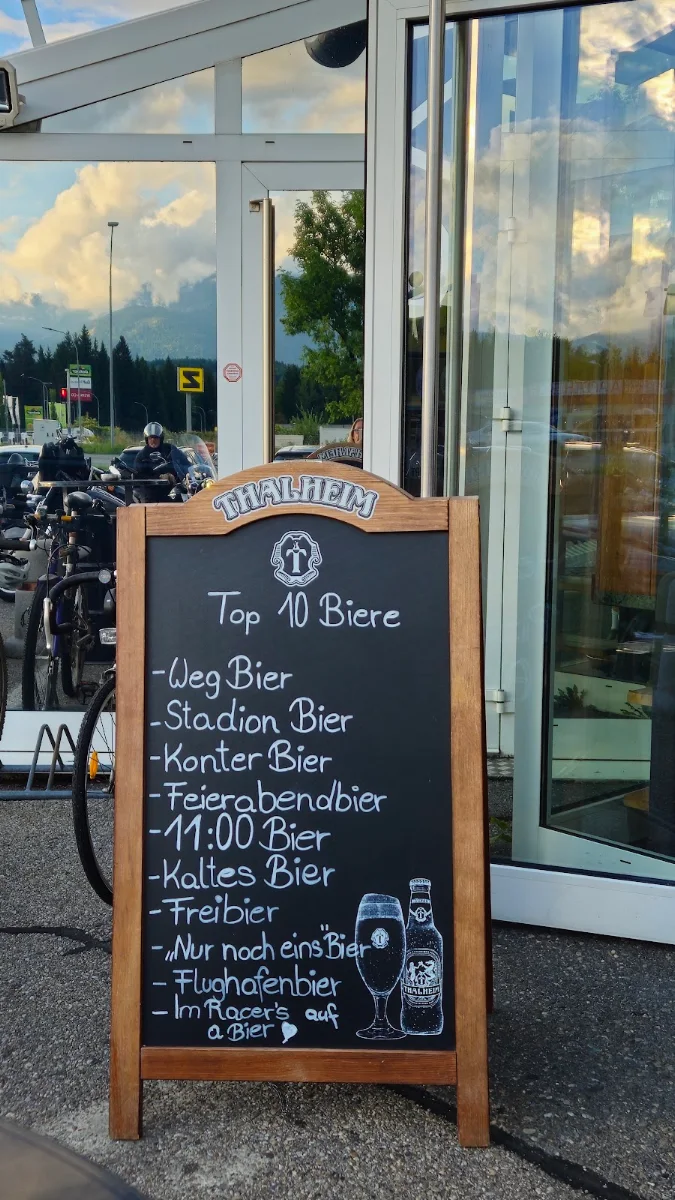 THALHEIM
T
Top 10 Biere
-Weg Bier
-Stadion Bier
-Konter Bier
-Feierabendbier
-11:00 Bier
-Kaltes Bier
-Freibier
-„Nur noch eins"Bier
-Flughafenbier
-Im Racer's auf
a Bier
THALHEIM